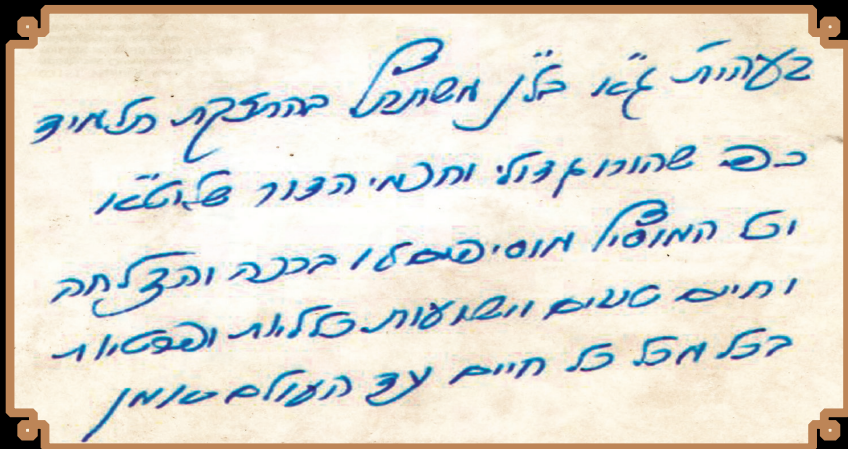 בעהי"ת ג"א בל"ן משתדל בהחזקת תלמיד
כפי שהורו גדולי וחכמי הדור שליט"א
וכל המוסיף מוסיפים לו ברכה והצלחה
וחיים טובים וישועות כלליות ופרטיות
בכל מכל כל חיים עד העולם אמן